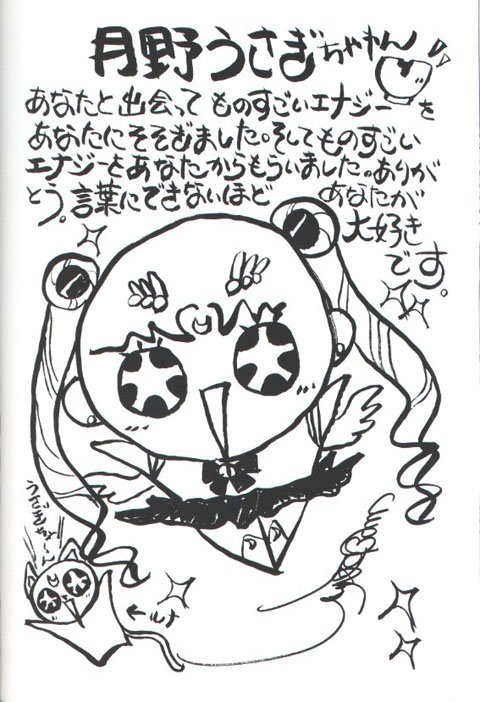 月野うさぎちゃん
あなたと出会って ものすごいエナジーを
あなたにそそぎました。そしてものすごい
エナジーをあなたからもらいました。ありが
とう。言葉にできないほど あなたが
大好き
です。
うさぎちゃーん
←ルナ